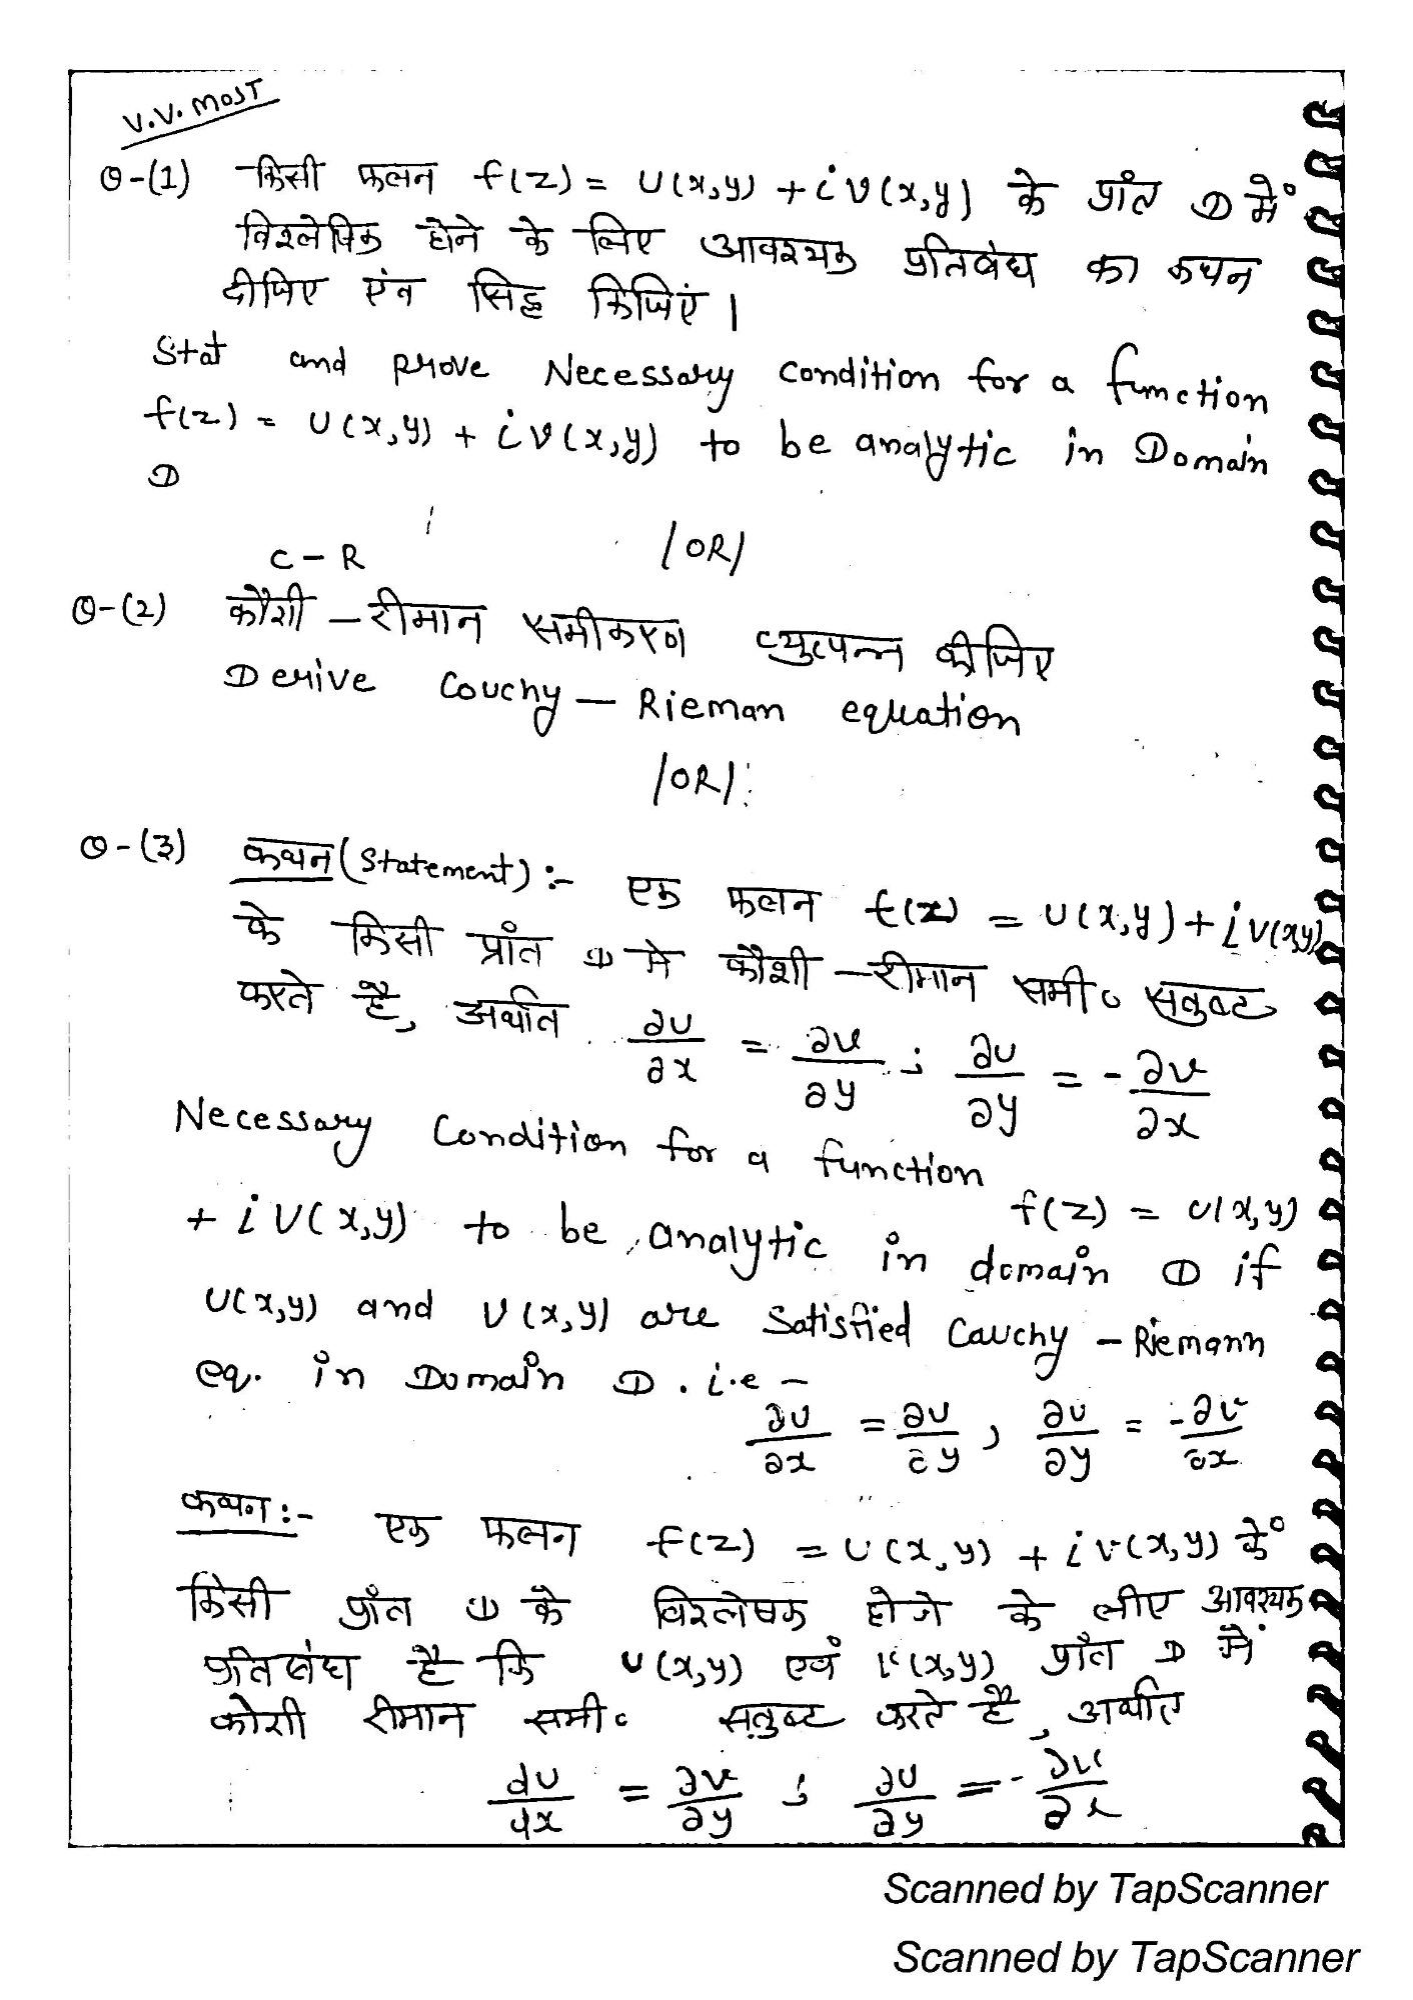 V.V. MOST
Q-(1) किसी फलन f(z) = U(x,y) + iV(x,y) के प्रांत D में
विश्लेषिक होने के लिए आवश्यक प्रतिबंध का कथन
दीजिए एंव सिद्ध किजिएं ।
Stat and prove Necessary condition for a function
f(z) = U(x,y) + iV(x,y) to be analytic in Domain
D
/OR/
C-R
Q-(2) कौशी - रीमान समीकरण व्युत्पन्न कीजिए
Derive Couchy - Rieman equation
/OR/
Q-(3) कथन (Statement) :- एक फलन f(z) = U(x,y) + iV(x,y)
के किसी प्रांत D मे कौशी - रीमान समी० सतुष्ट
करते है, अर्थात ∂U/∂x = ∂V/∂y ; ∂U/∂y = -∂V/∂x
Necessary Condition for a function
f(z) = U(x,y)
+ iV(x,y) to be analytic in domain D if
U(x,y) and V(x,y) are Satisfied Cauchy - Riemann
eq. in Domain D. i.e -
∂U/∂x = ∂U/∂y , ∂U/∂y = -∂V/∂x
कथन :- एक फलन f(z) = U(x,y) + iV(x,y) कें
किसी प्रांत D के विश्लेषक होने के लीए आवश्यक
प्रतिबंध है कि U(x,y) एवं V(x,y) प्रांत D में
कोशी रीमान समी० सतुष्ट करते है, अर्थात
dU/dx = ∂V/∂y ; ∂U/∂y = -∂V/∂x
Scanned by TapScanner
Scanned by TapScanner